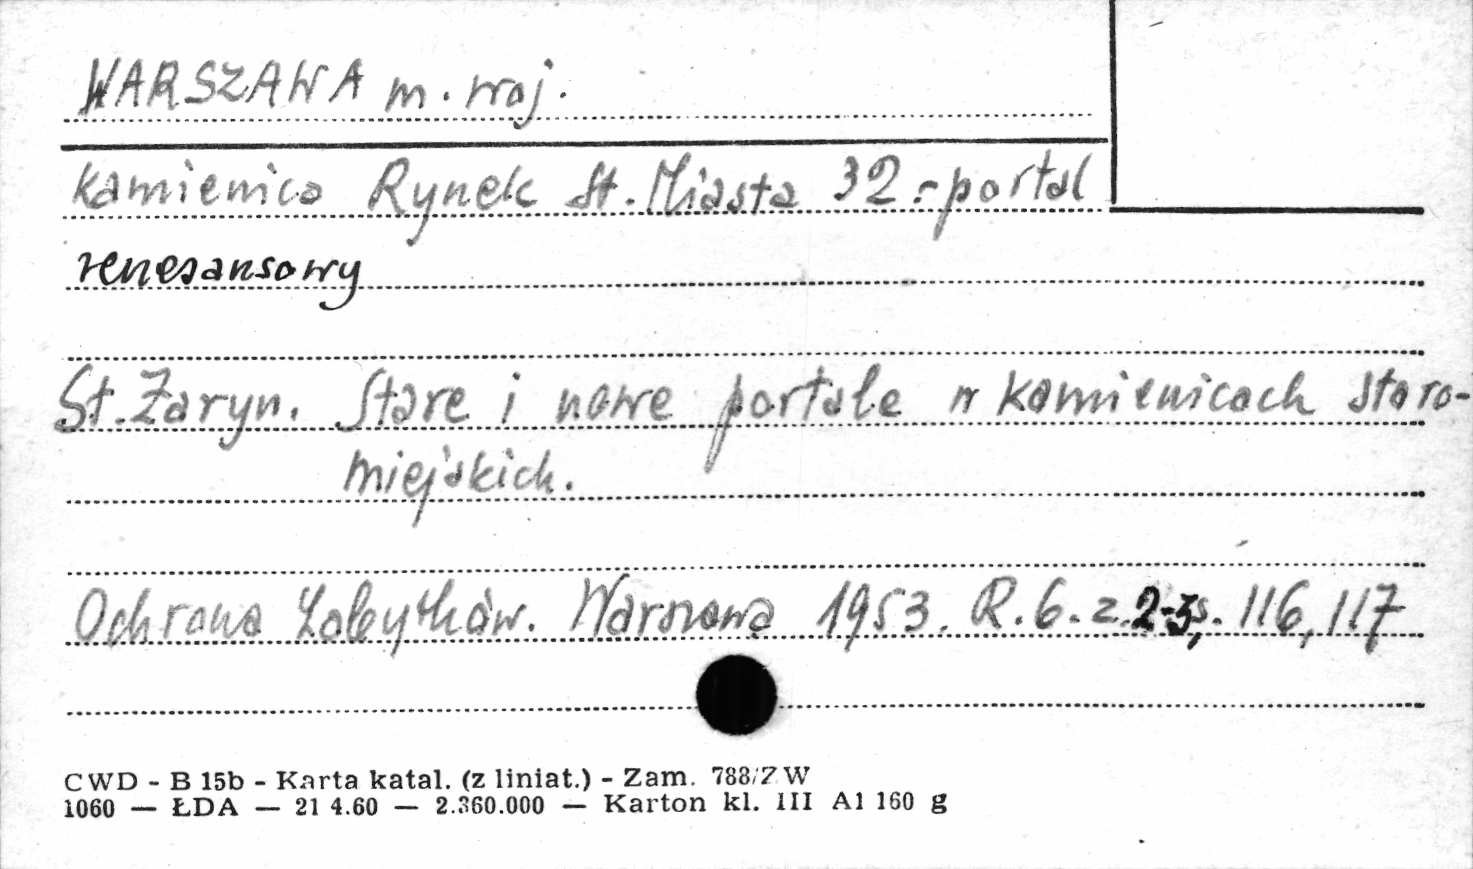 WARSZAWA m. woj.
kamienica Rynek St. Miasta 32 - portal
renesansowy
St. Żaryn. Stare i nowe portale w kamienicach staro-
miejskich.
Ochrona Zabytków. Warszawa 1953. R. 6. z. 2-3, s. 116, 117
CWD - B 15b - Karta katal. (z liniat.) - Zam. 788/ZW
1060 — ŁDA — 21 4.60 — 2.360.000 — Karton kl. III A1 160 g